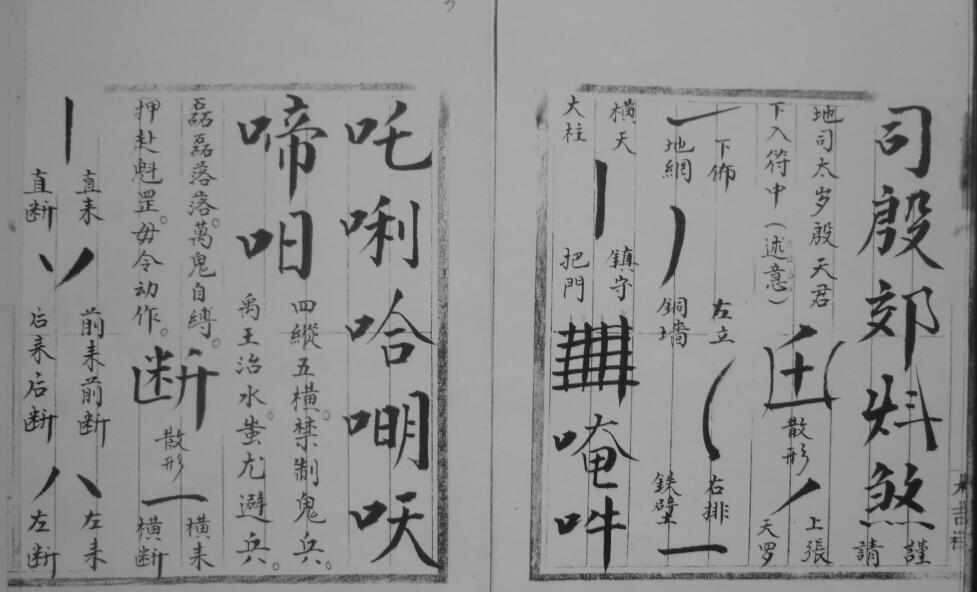 司殷郊炓煞
謹
請
地司太岁殷天君
下入符中（述意）
散形
上張
天罗
下佈
地網
左立
銅墙
右排
鉄壁
横天
大柱
鎮守
把門
唵吽
吒唎哈
啼
四縱五横。禁制鬼兵。
禹王治水。蚩尤避兵。
磊磊落落。萬鬼自縛。
押赴魁罡。毋令动作。
断
散形
横来
横断
直来
直断
前来前断
后来后断
左来
左断